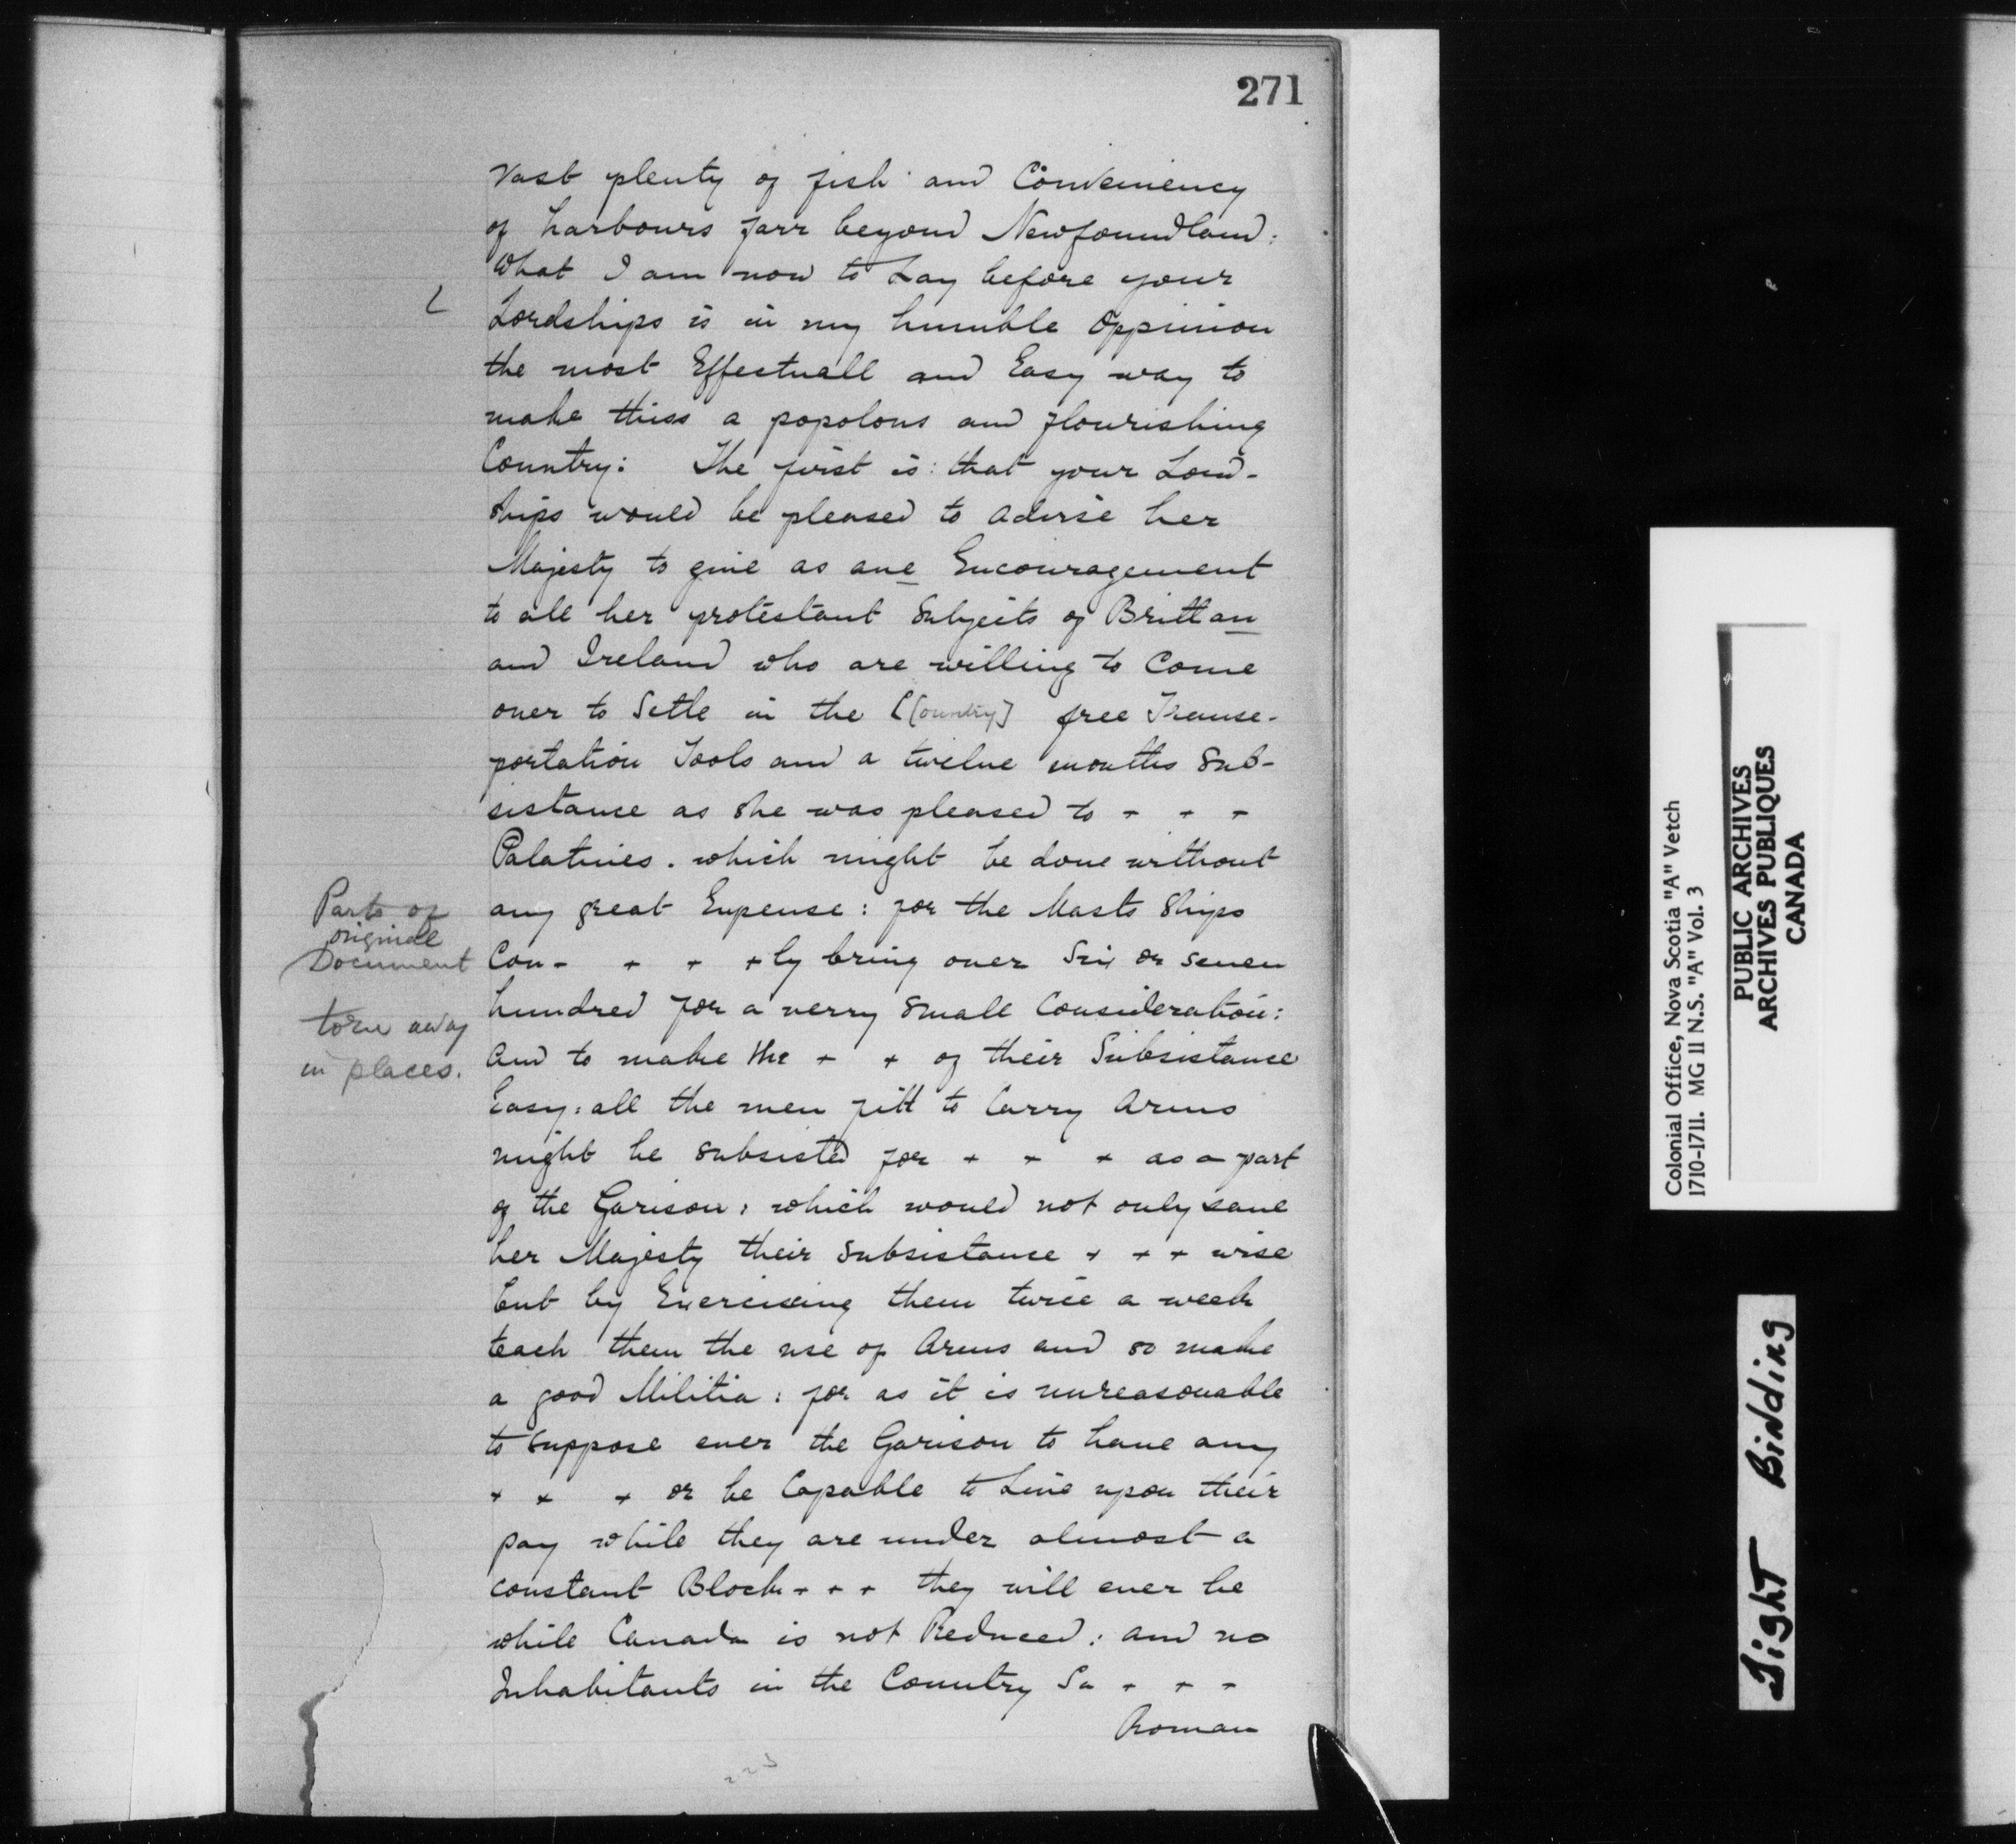 271
Vast plenty of fish and Conveniency
of harbours farr beyond Newfoundland:
What I am now to Lay before your
Lordships is in my humble Oppinion
the most Effectuall and Easy way to
make thiss a popolous and flourishing
Country: The first is: that your Lord-
ships would be pleased to advise her
Majesty to give as ane Encouragement
to all her protestant Subjects of Brittan
and Ireland who are willing to Come
over to Setle in the C[ountry] free Transe-
portation Tools and a twelve months Sub-
sistance as she was pleased to + + +
Palatines. which might be done without
any great Expense: for the Masts Ships
Con- + + +ly bring over Six or seven
hundred for a verry Small Consideration:
and to make the + + of their Subsistance
Easy: all the men fitt to Carry Arms
might be subsisted for + + + as a part
of the Garison: which would not only save
her Majesty their Subsistance + + + wise
but by Exercising them twice a week
teach them the use of Arms and so make
a good Militia: for as it is unreasonable
to suppose ever the Garison to have any
+ + + or be Capable to Live upon their
pay while they are under almost a
constant Block + + + they will ever be
while Canada is not Reduced: and no
Inhabitants in the Country Sa + + +
Roman
Parts of
original
Document
torn away
in places.
Colonial Office, Nova Scotia "A" Vetch
1710-1711. MG 11 N.S. "A" Vol. 3
PUBLIC ARCHIVES
ARCHIVES PUBLIQUES
CANADA
Tight Binding